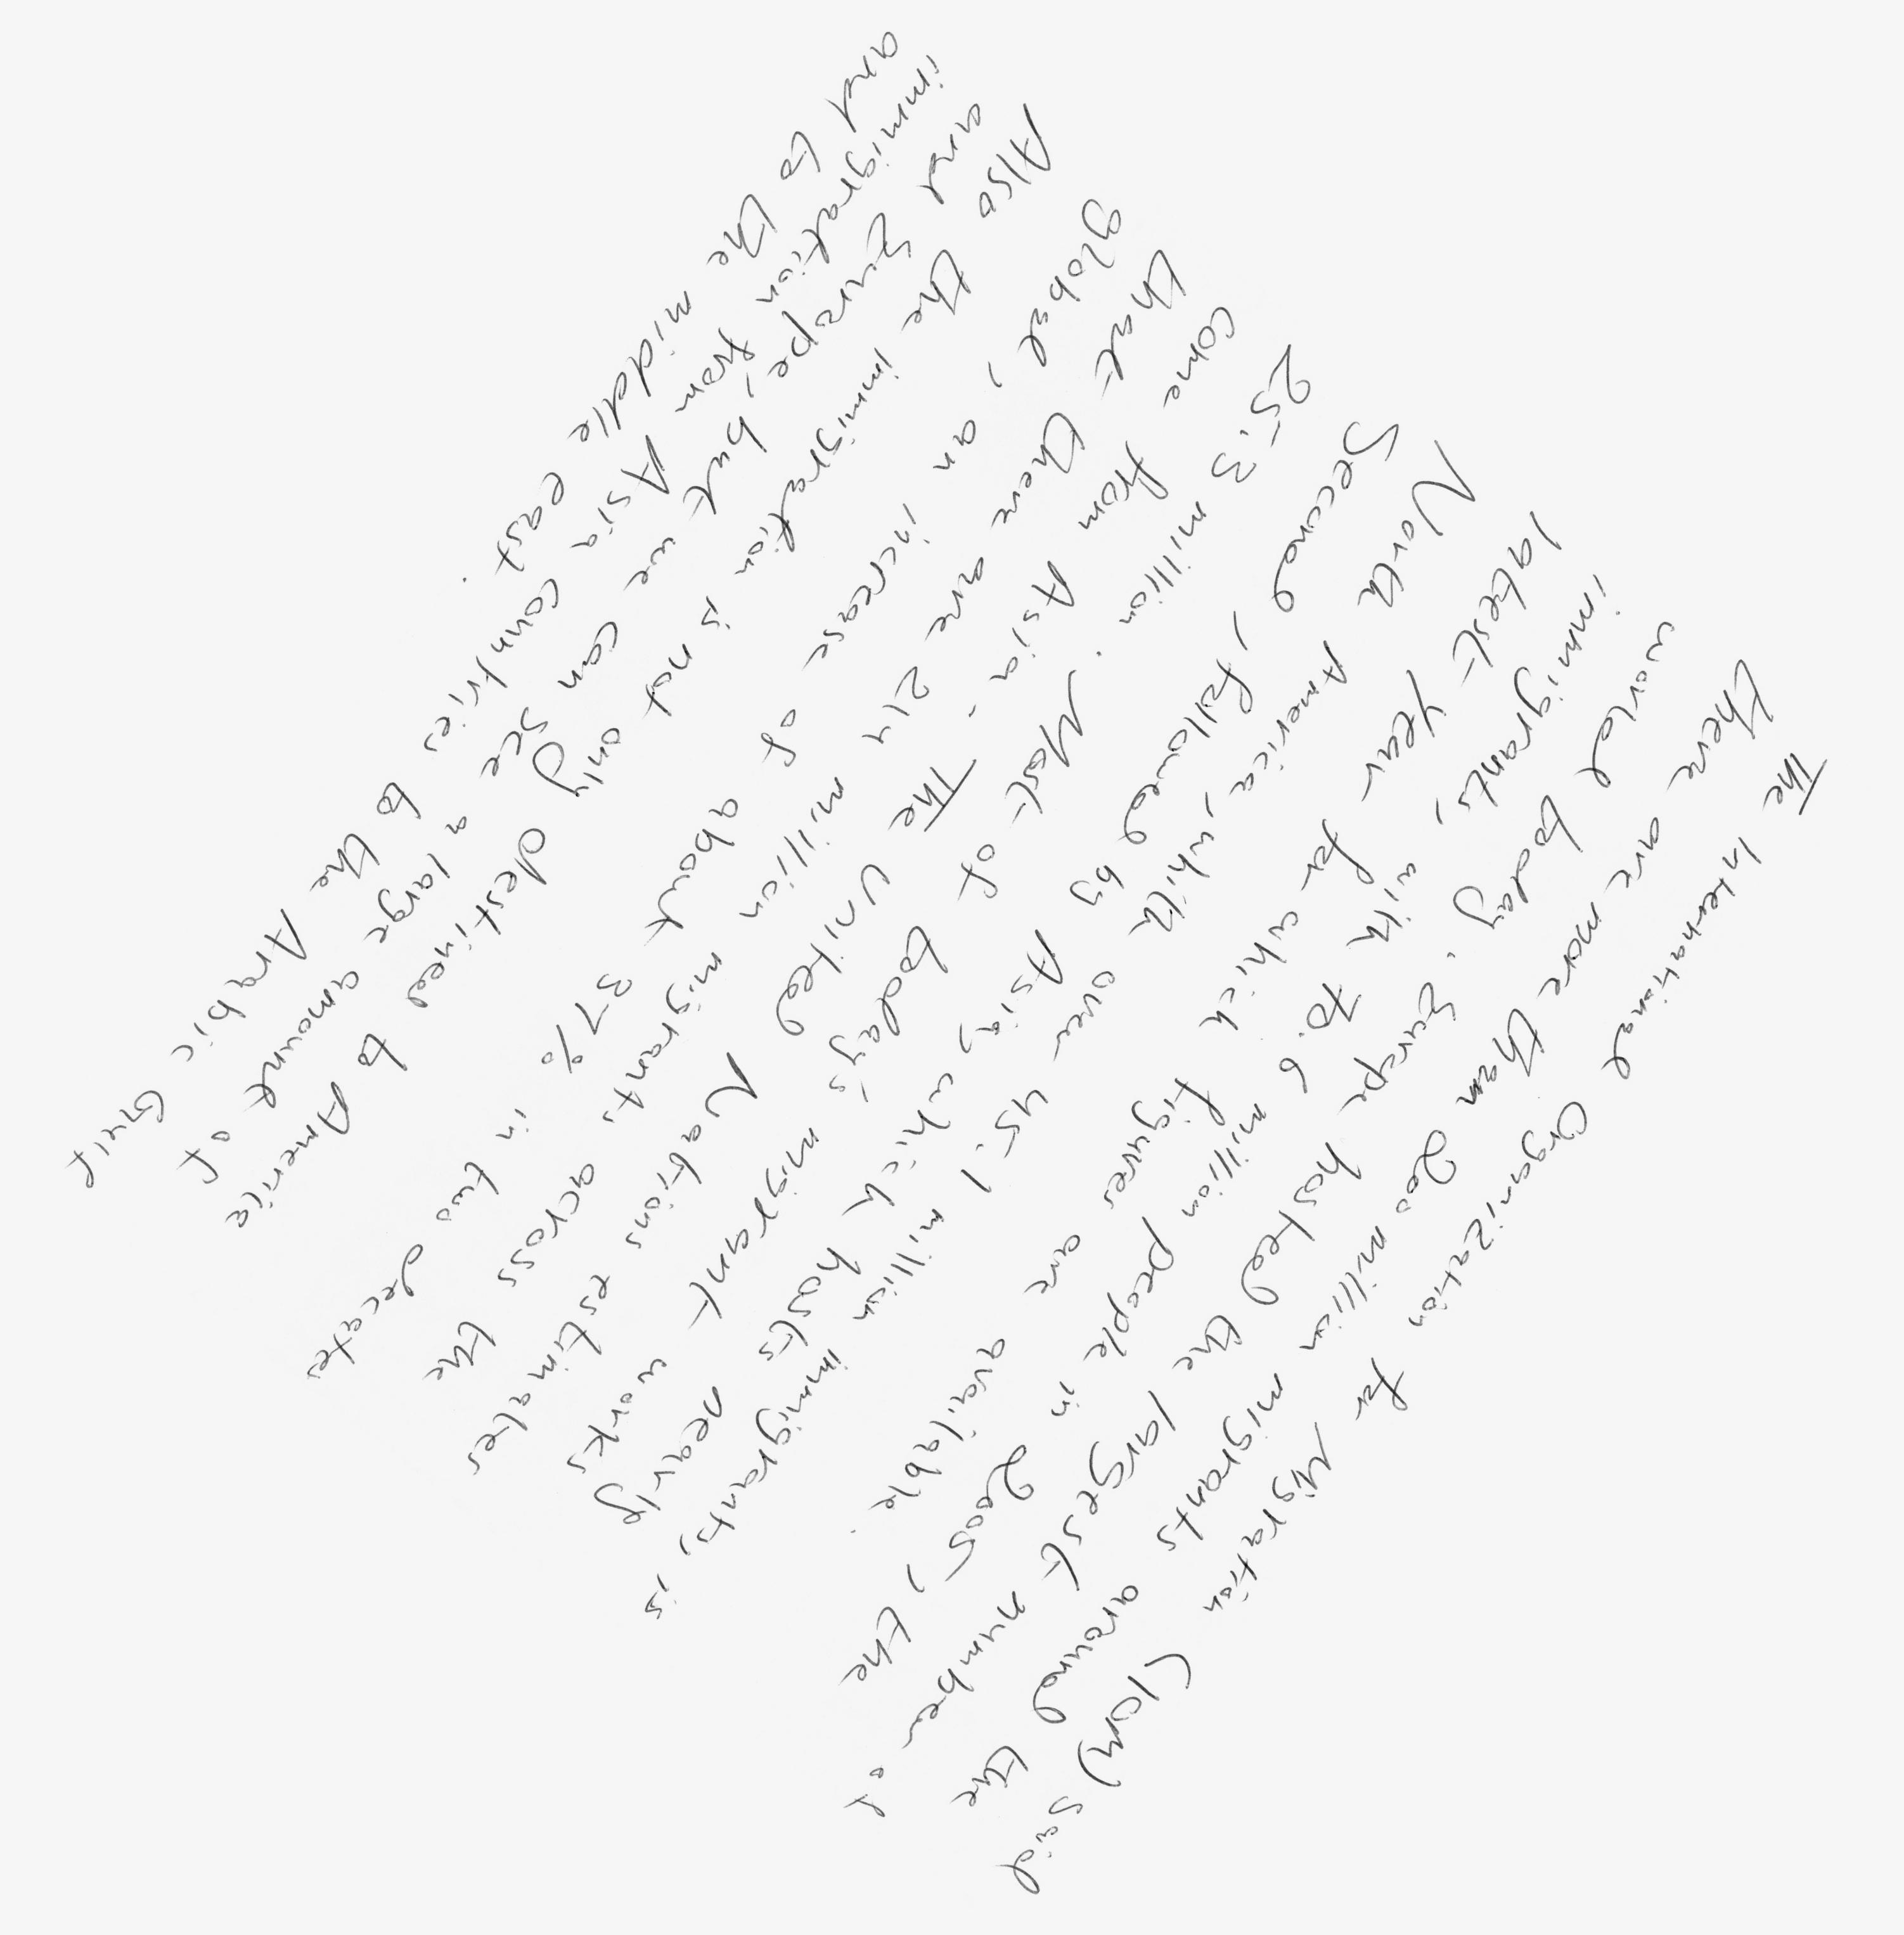 The International Organization for Migration (IOM) said
there are more than 200 million migrants around the
world today. Europe hosted the largest number of
immigrants, with 70.6 million people in 2005, the
latest year for which figures are available.
North America, with over 45.1 million immigrants, is
second, followed by Asia, which hosts nearly
25.3 million. Most of today's migrant workers
come from Asia. The United Nations estimates
that there are 214 million migrants across the
globe, an increase of about 37% in two decades
Also the immigration is not only destined to America
and Europe, but we can see a large amount of
immigration from Asia countries to the Arabic Gulf
and to the middle east.